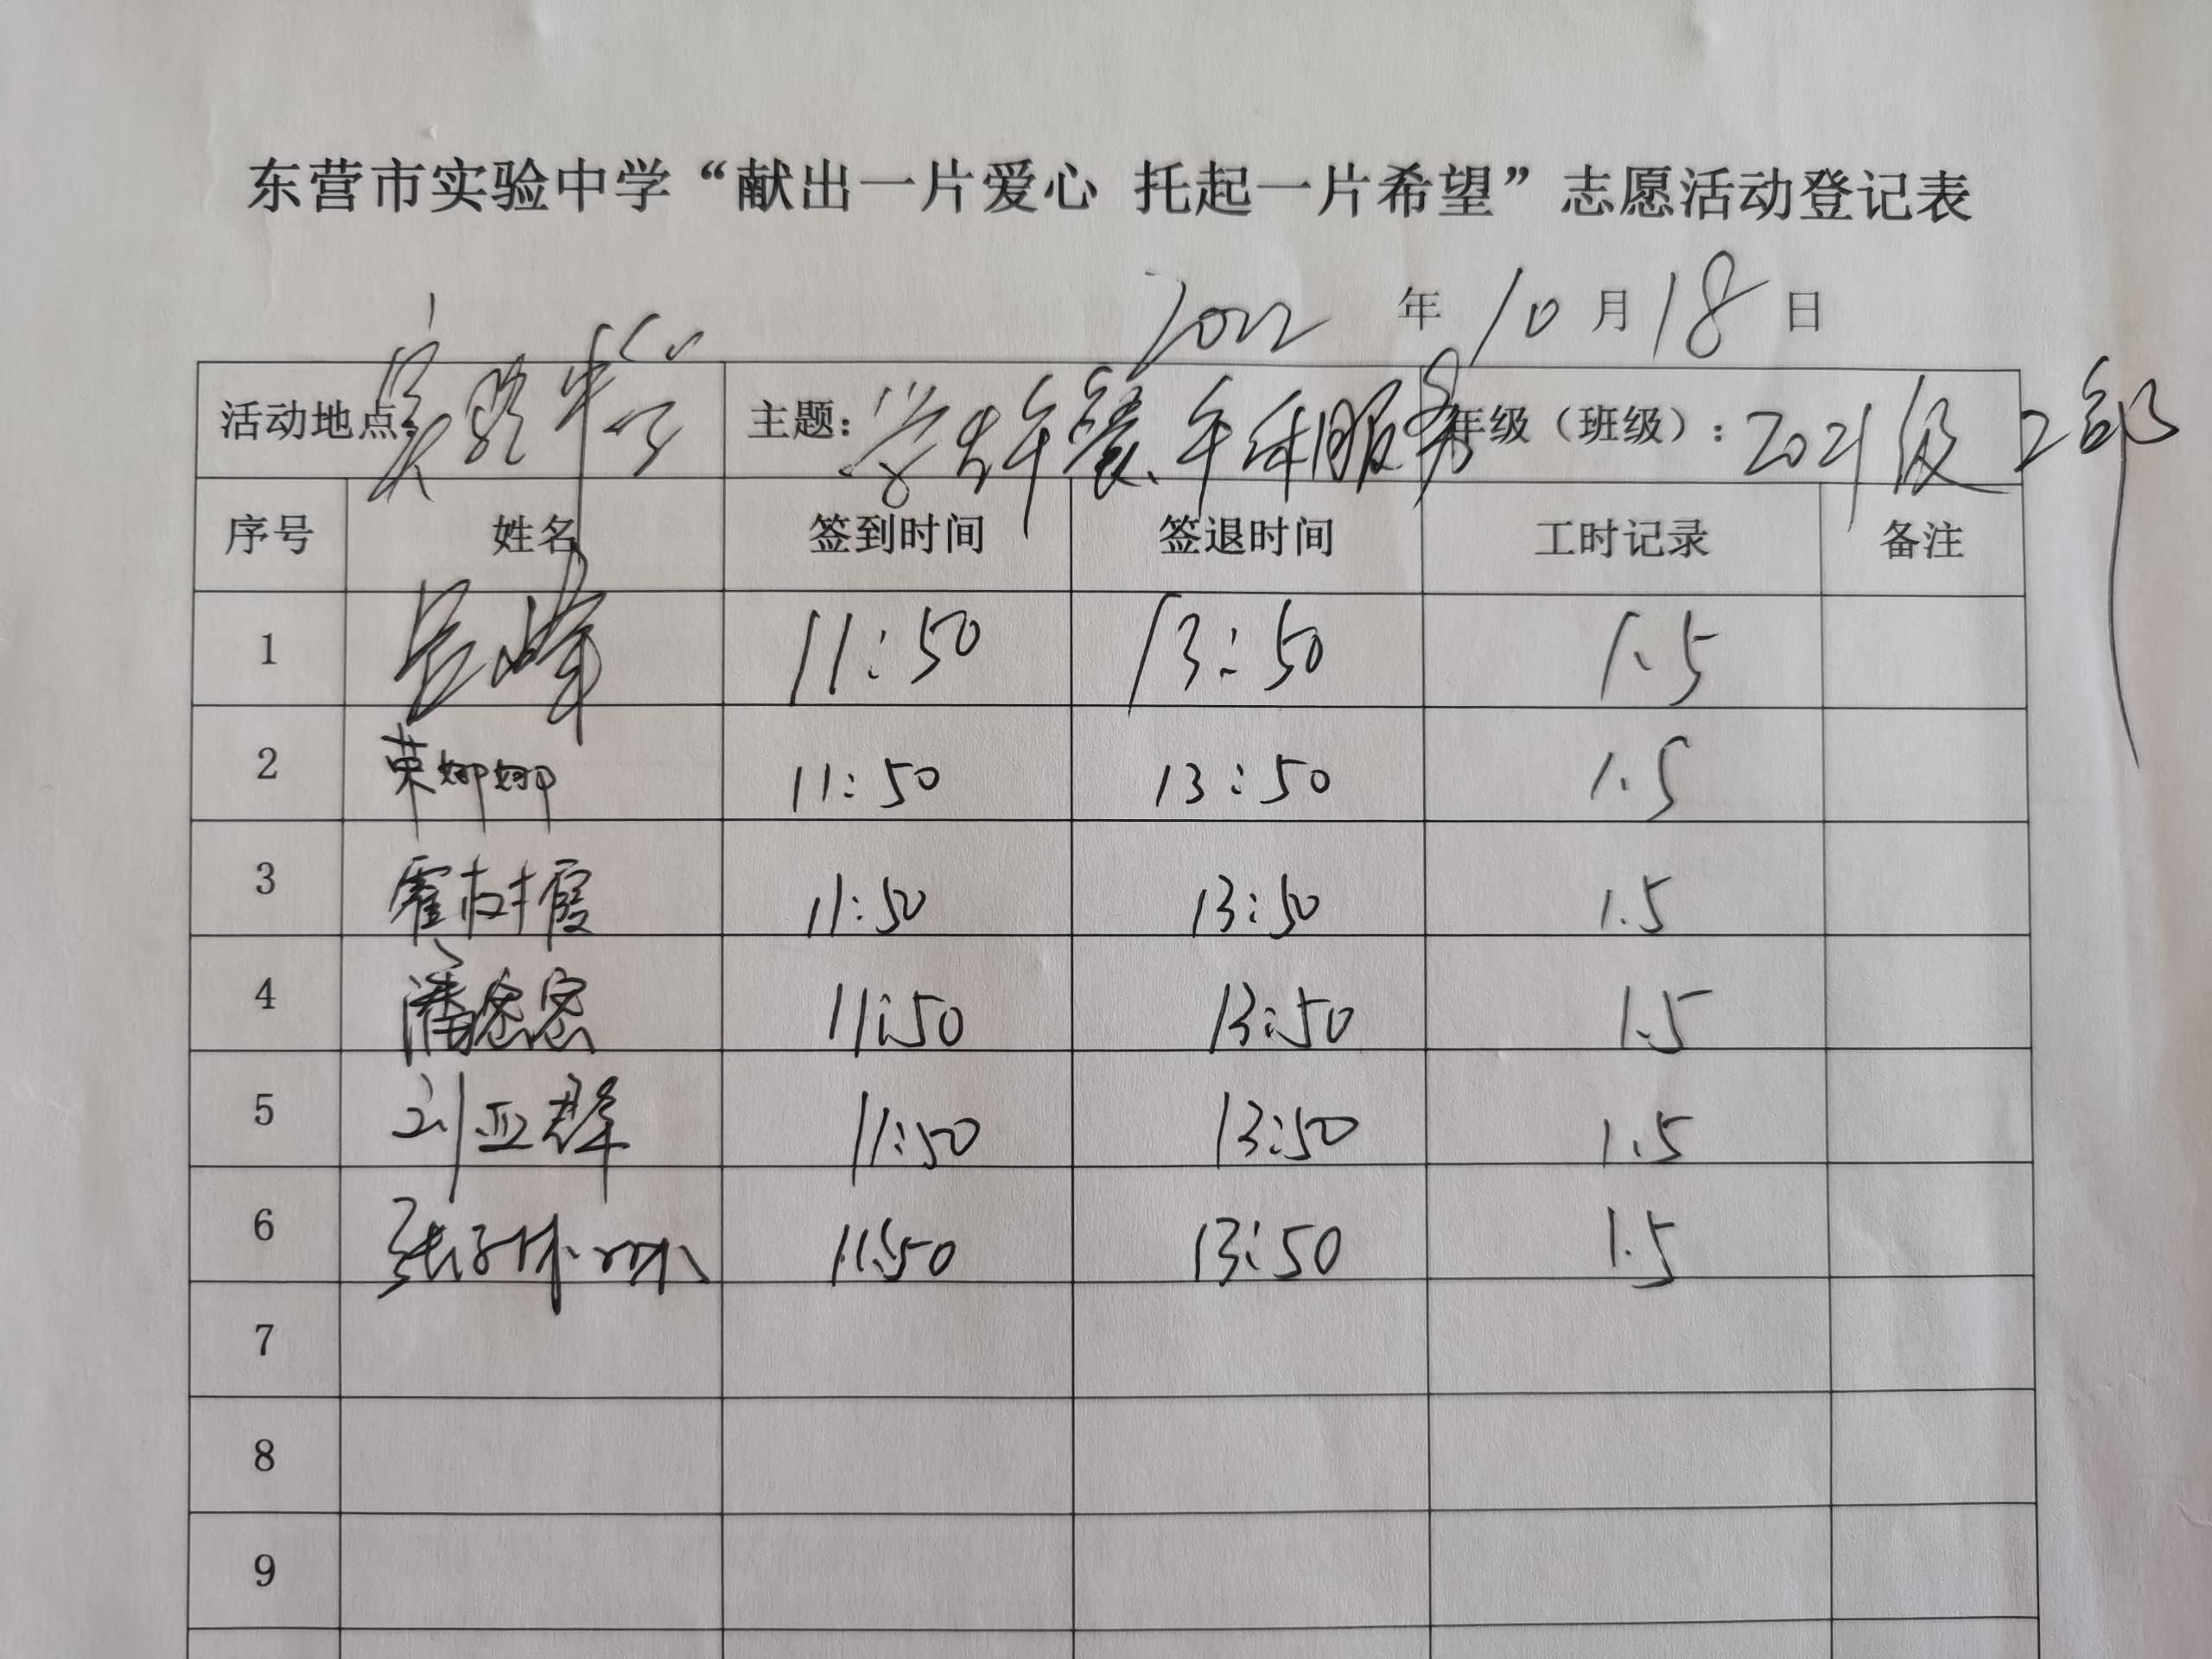 东营市实验中学“献出一片爱心 托起一片希望”志愿活动登记表
2022 年 10 月 18 日
活动地点：实验中学 主题：学生午餐、午休服务 年级（班级）：2021级2部
序号 姓名 签到时间 签退时间 工时记录 备注
1 11:50 13:50 1.5
2 荣娜娜 11:50 13:50 1.5
3 霍树霞 11:50 13:50 1.5
4 潘密密 11:50 13:50 1.5
5 刘亚群 11:50 13:50 1.5
6 11:50 13:50 1.5
7
8
9